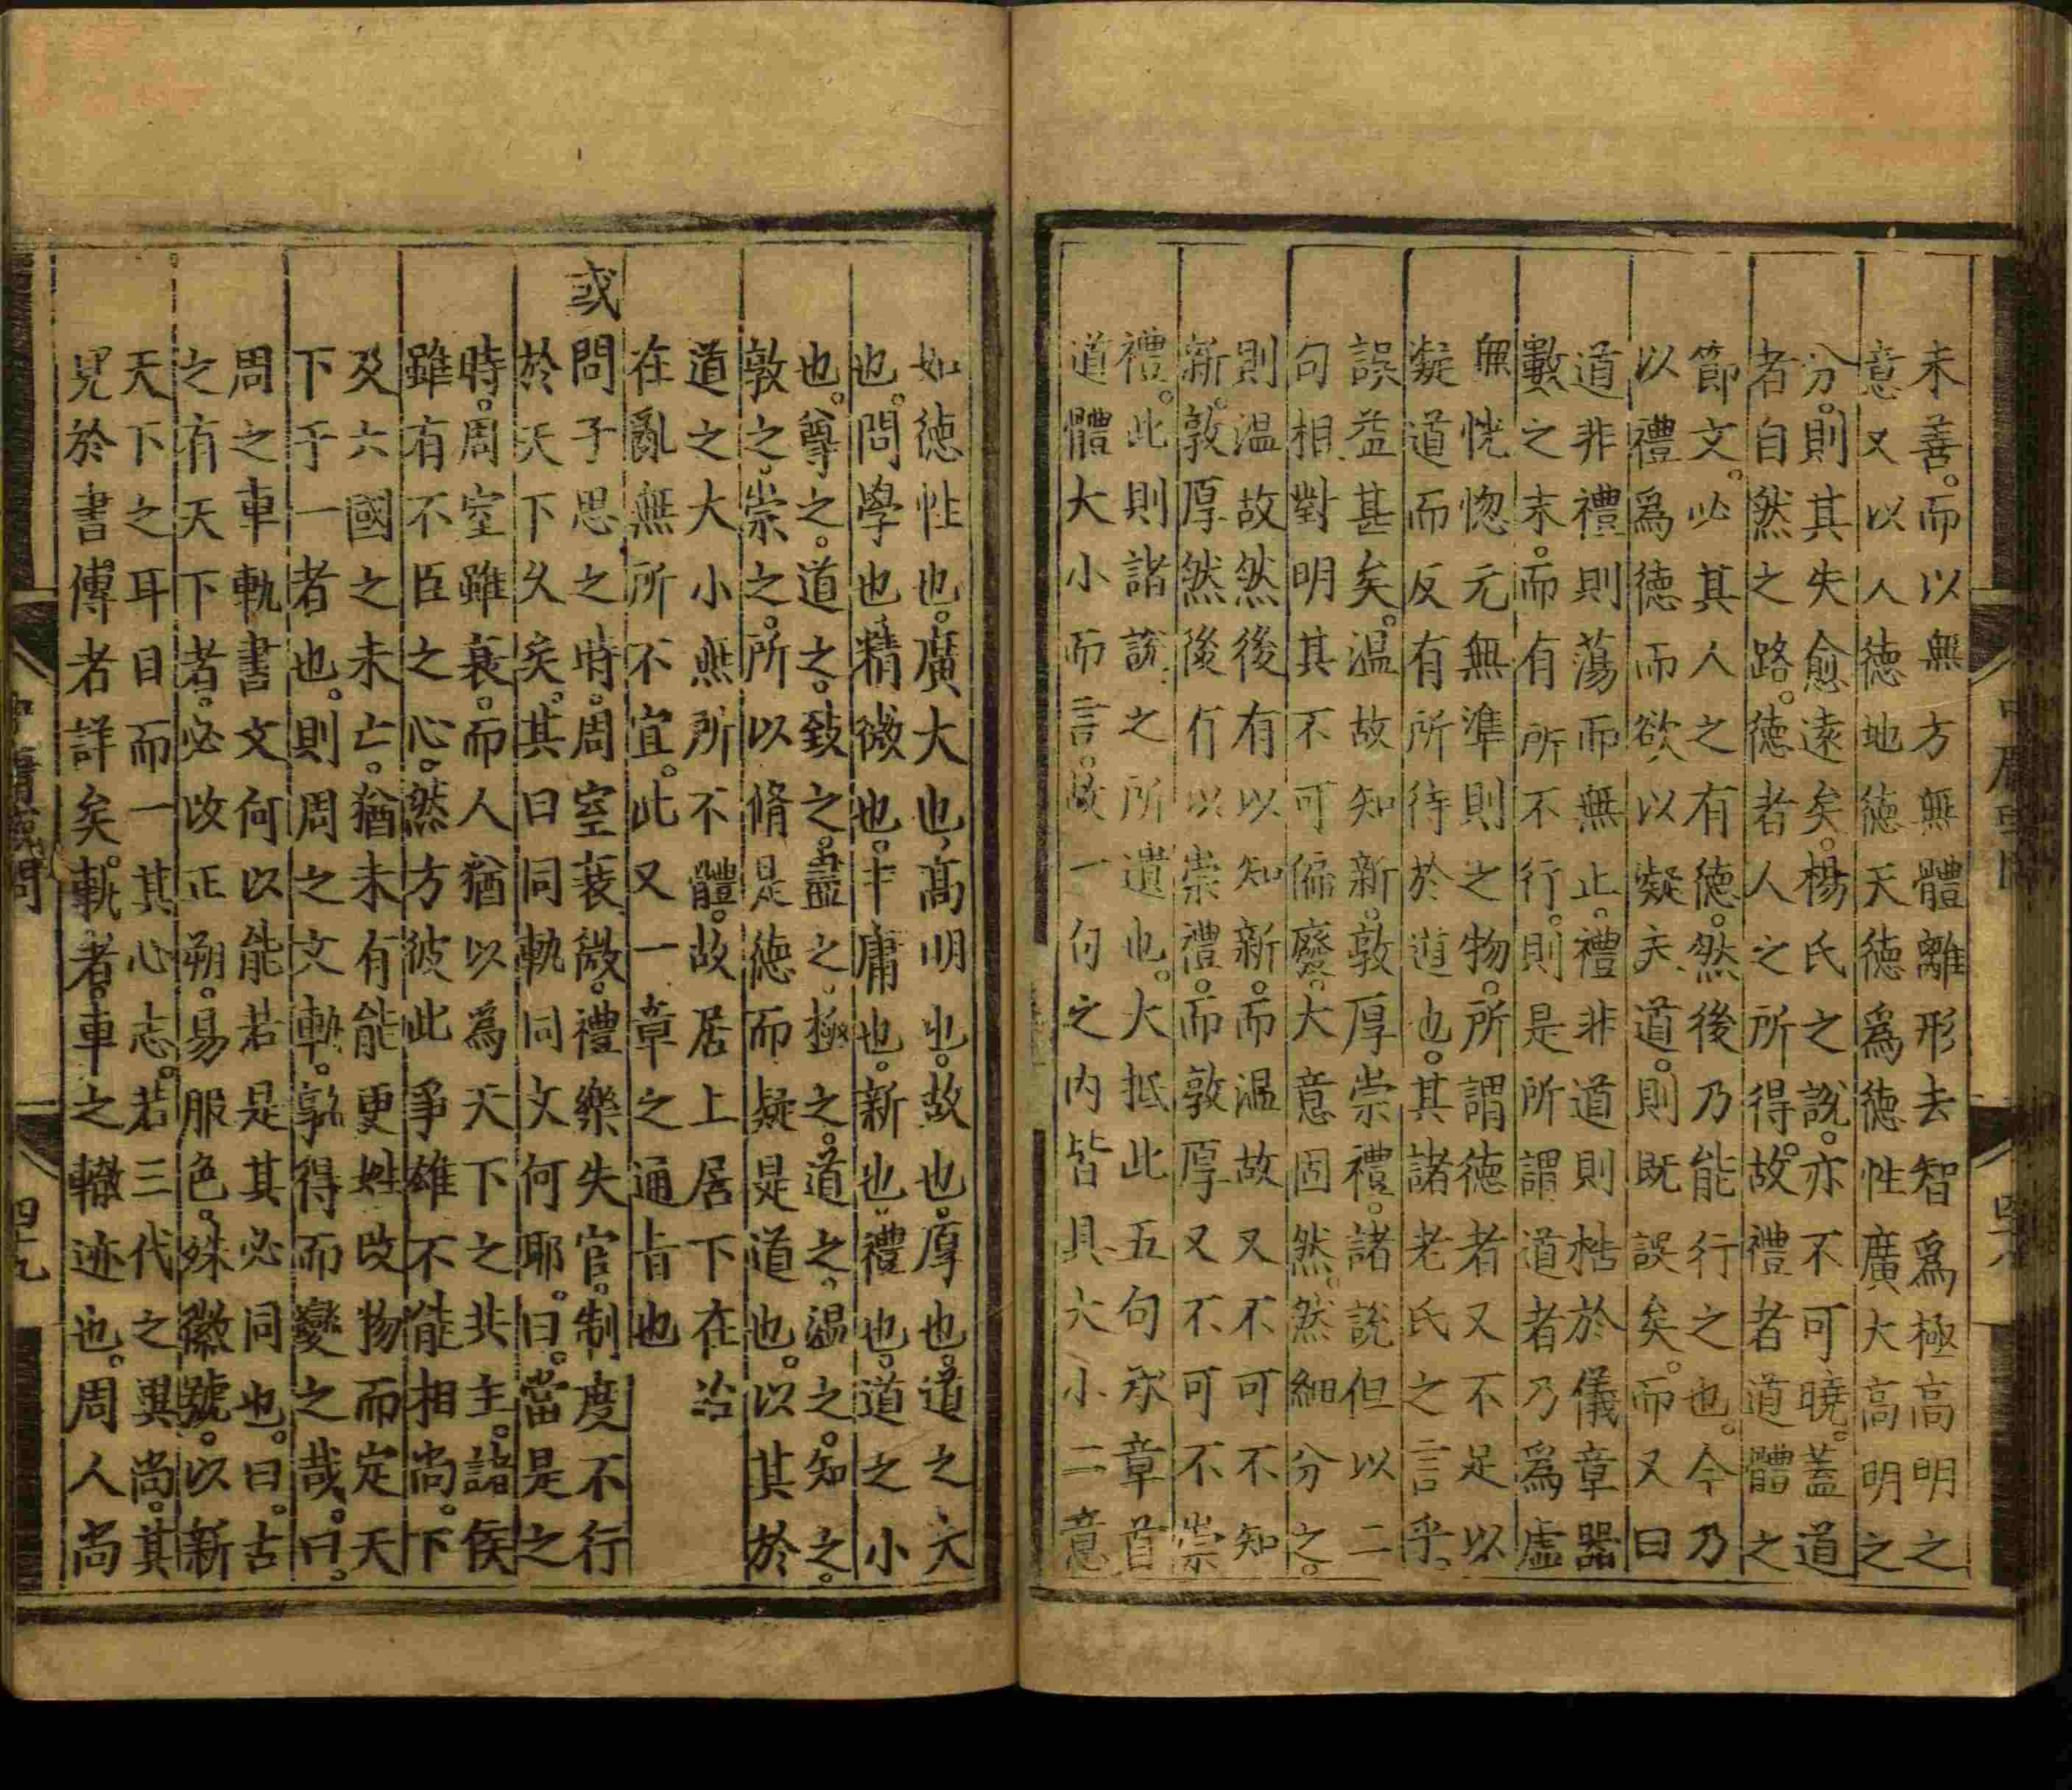 未善。而以無方無體離形去智爲極高明之
意又以人德地德天德爲德性廣大高明之
分。則其失愈遠矣。楊氏之說。亦不可曉。蓋道
者自然之路。德者人之所得。故禮者道體之
節文。必其人之有德。然後乃能行之也。今乃
以禮爲德而欲以凝夫道。則既誤矣。而又曰
道非禮則蕩而無止。禮非道則梏於儀章器
數之末。而有所不行。則是所謂道者乃爲虛
無恍惚元無準則之物。所謂德者又不足以
凝道而反有所待於道也。其諸老氏之言乎。
誤益甚矣。温故知新。敦厚崇禮。諸說但以二
句相對明其不可偏廢。大意固然。然細分之。
則温故然後有以知新。而温故又不可不知
新。敦厚然後有以崇禮。而敦厚又不可不崇
禮。此則諸說之所遺也。大抵此五句承章首
道體大小而言。故一句之内皆具大小二意
如德性也。廣大也。高明也。故也。厚也。道之大
也。問學也。精微也。中庸也。新也。禮也。道之小
也。尊之。道之。致之。盡之。極之。道之。温之。知之。
敦之。崇之。所以脩是德而凝是道也。以其於
道之大小無所不體。故居上居下在治
在亂無所不宜。此又一章之通旨也
或問子思之時。周室衰微。禮樂失官。制度不行
於天下久矣。其曰同軌同文何耶。曰。當是之
時。周室雖衰。而人猶以爲天下之共主。諸侯
雖有不臣之心。然方彼此爭雄不能相尚。下
及六國之未亡。猶未有能更姓改物而定天
下于一者也。則周之文軌。孰得而變之哉。曰。
周之車軌書文何以能若是其必同也。曰。古
之有天下者。必改正朔。易服色。殊徽號。以新
天下之耳目而一其心志。若三代之異尚。其
見於書傳者詳矣。軌者。車之轍迹也。周人尚
中庸或問
四十八
中庸或問
四十九